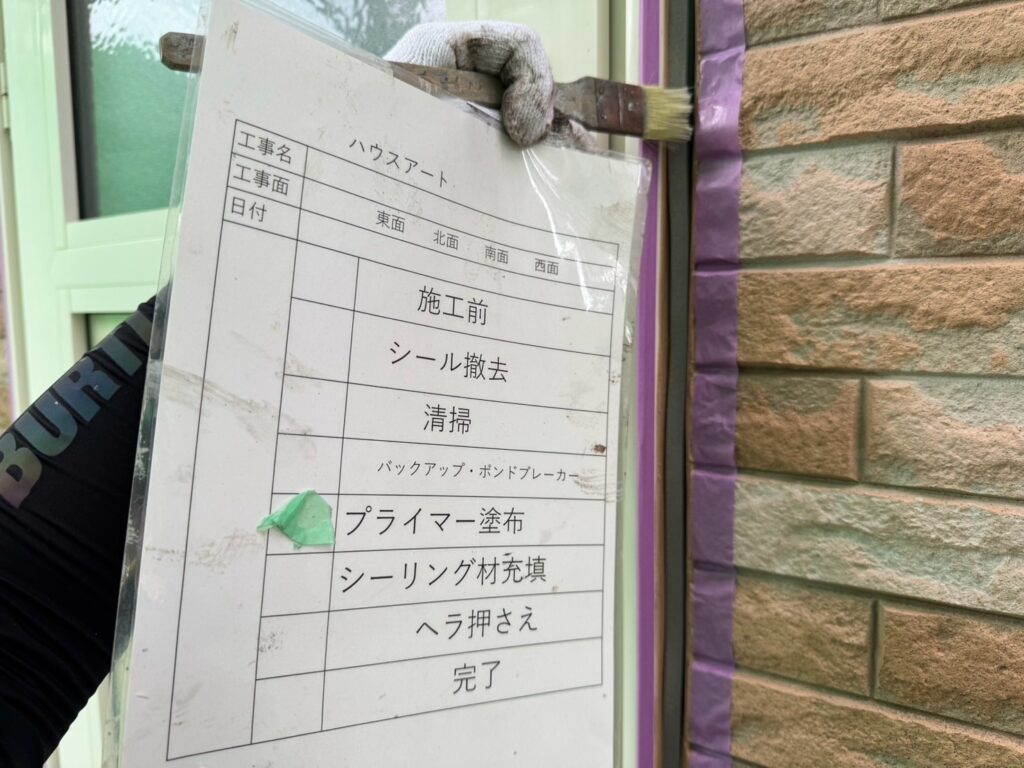 工事名 ハウスアート
工事面 東面 北面 南面 西面
日付
施工前
シール撤去
清掃
バックアップ・ボンドブレーカー
プライマー塗布
シーリング材充填
ヘラ押さえ
完了